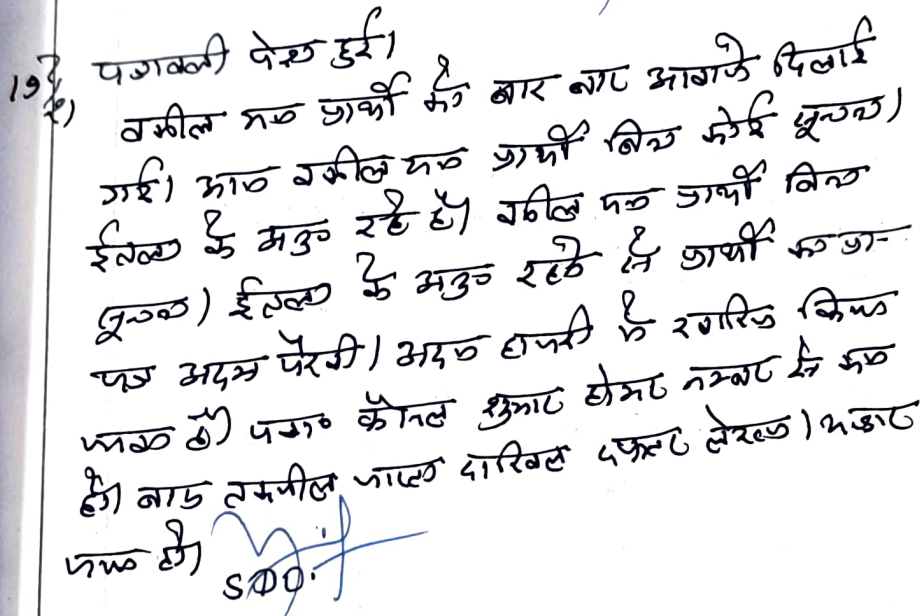 19/2) पत्रावली पेश हुई।
वकील मय प्रार्थी को बार बार आवाजे दिलाई
गई। वकील मय प्रार्थी बिना कोई सूचना/
ईतला के अनु० रहे है। वकील मय प्रार्थी बिना
सूचना/ ईतला के अनु० रहने से प्रार्थी का प्रा०
पत्र अदम पैरवी/ अदम हाजरी में खारिज किया
जाता है। पत्रा० फैसल शुमार होकर नम्बर से कम
हो। बाद तकमील जाब्ता दाखिल दफ्तर लेख०/
जावे हो।
SDO.